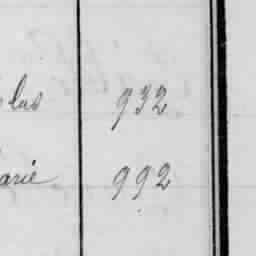 las 932
arie 992